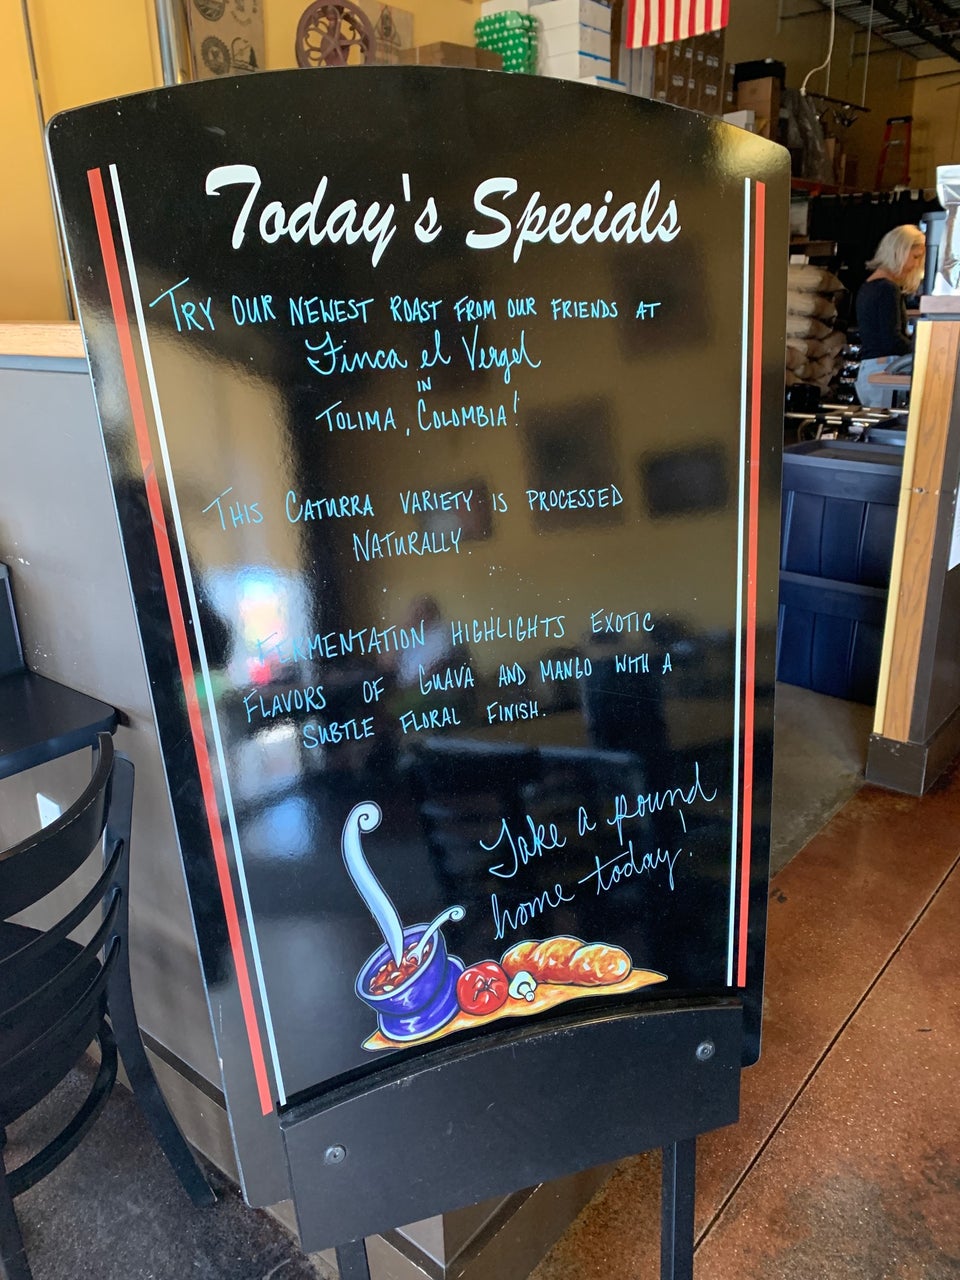 Today's Specials
TRY OUR NEWEST ROAST FROM OUR FRIENDS AT
Finca el Vergel
IN
TOLIMA, COLOMBIA!
THIS CATURRA VARIETY IS PROCESSED
NATURALLY.
FERMENTATION HIGHLIGHTS EXOTIC
FLAVORS OF GUAVA AND MANGO WITH A
SUBTLE FLORAL FINISH.
Take a pound
home today!